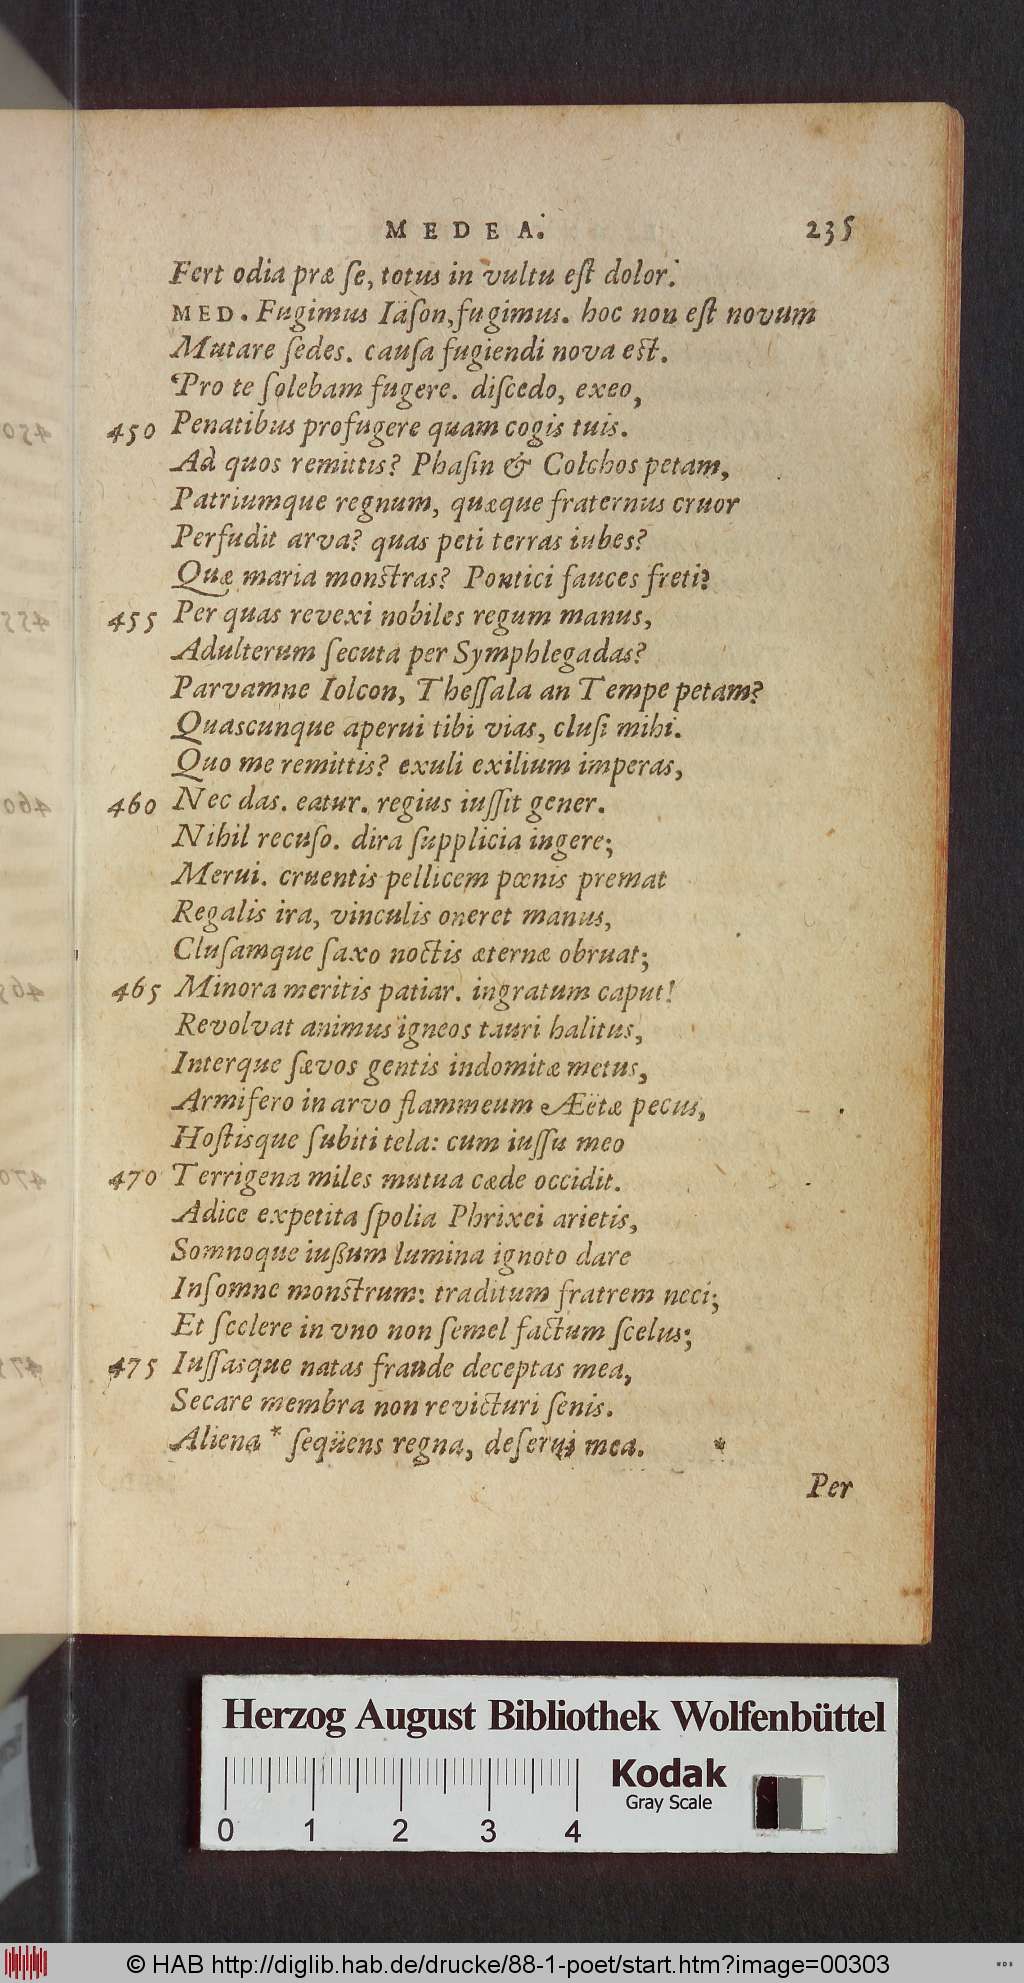 MEDEA. 235
Fert odia præ ſe, totus in vultu eſt dolor.
MED. Fugimus Iäſon, fugimus. hoc non eſt novum
Mutare ſedes. cauſa fugiendi nova eſt.
Pro te ſolebam fugere. diſcedo, exeo,
450 Penatibus profugere quam cogis tuis.
Ad quos remittis? Phaſin & Colchos petam,
Patriumque regnum, quæque fraternus cruor
Perfudit arva? quas peti terras iubes?
Quæ maria monſtras? Pontici fauces freti?
455 Per quas revexi nobiles regum manus,
Adulterum ſecuta per Symphlegadas?
Parvamne Iolcon, Theſſala an Tempe petam?
Quascunque aperui tibi vias, cluſi mihi.
Quo me remittis? exuli exilium imperas,
460 Nec das. eatur. regius iuſſit gener.
Nihil recuſo. dira ſupplicia ingere;
Merui. cruentis pellicem pœnis premat
Regalis ira, vinculis oneret manus,
Cluſamque ſaxo noctis æternæ obruat;
465 Minora meritis patiar. ingratum caput!
Revolvat animus igneos tauri halitus,
Interque ſævos gentis indomitæ metus,
Armifero in arvo flammeum Æëtæ pecus,
Hoſtisque ſubiti tela: cum iuſſu meo
470 Terrigena miles mutua cæde occidit.
Adice expetita ſpolia Phrixei arietis,
Somnoque iußum lumina ignoto dare
Inſomne monſtrum: traditum fratrem neci;
Et ſcelere in vno non ſemel factum ſcelus;
475 Iuſſasque natas fraude deceptas mea,
Secare membra non revicturi ſenis.
Aliena * ſeqüens regna, deſerui mea. *
Per
Herzog August Bibliothek Wolfenbüttel
Kodak
Gray Scale
0 1 2 3 4
© HAB http://diglib.hab.de/drucke/88-1-poet/start.htm?image=00303